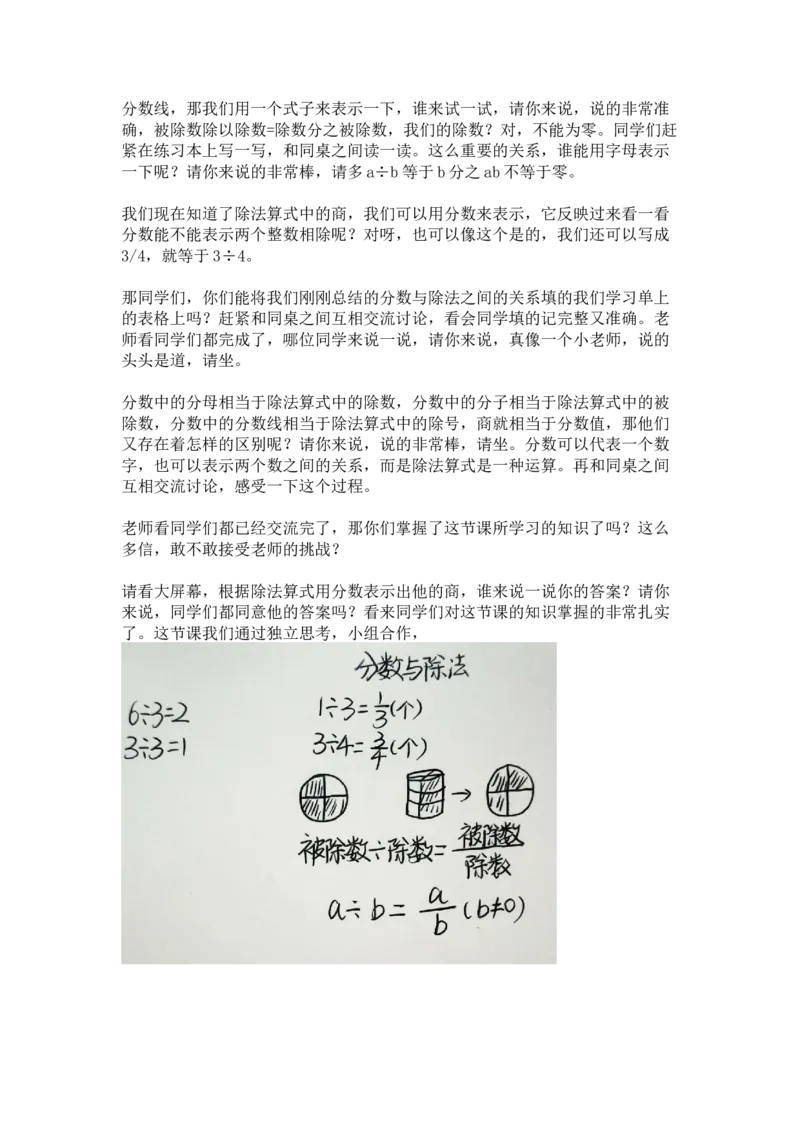 分数线，那我们用一个式子来表示一下，谁来试一试，请你来说，说的非常准
确，被除数除以除数=除数分之被除数，我们的除数？对，不能为零。同学们赶
紧在练习本上写一写，和同桌之间读一读。这么重要的关系，谁能用字母表示
一下呢？请你来说的非常棒，请多a÷b等于b分之ab不等于零。
我们现在知道了除法算式中的商，我们可以用分数来表示，它反映过来看一看
分数能不能表示两个整数相除呢？对呀，也可以像这个是的，我们还可以写成
3/4，就等于3÷4。
那同学们，你们能将我们刚刚总结的分数与除法之间的关系填的我们学习单上
的表格上吗？赶紧和同桌之间互相交流讨论，看会同学填的记完整又准确。老
师看同学们都完成了，哪位同学来说一说，请你来说，真像一个小老师，说的
头头是道，请坐。
分数中的分母相当于除法算式中的除数，分数中的分子相当于除法算式中的被
除数，分数中的分数线相当于除法算式中的除号，商就相当于分数值，那他们
又存在着怎样的区别呢？请你来说，说的非常棒，请坐。分数可以代表一个数
字，也可以表示两个数之间的关系，而是除法算式是一种运算。再和同桌之间
互相交流讨论，感受一下这个过程。
老师看同学们都已经交流完了，那你们掌握了这节课所学习的知识了吗？这么
多信，敢不敢接受老师的挑战？
请看大屏幕，根据除法算式用分数表示出他的商，谁来说一说你的答案？请你
来说，同学们都同意他的答案吗？看来同学们对这节课的知识掌握的非常扎实
了。这节课我们通过独立思考，小组合作，
分数与除法
6÷3=2
3÷3=1
1÷3=1/3(个)
3÷4=3/4(个)
被除数÷除数=被除数/除数
a÷b=a/b(b≠0)